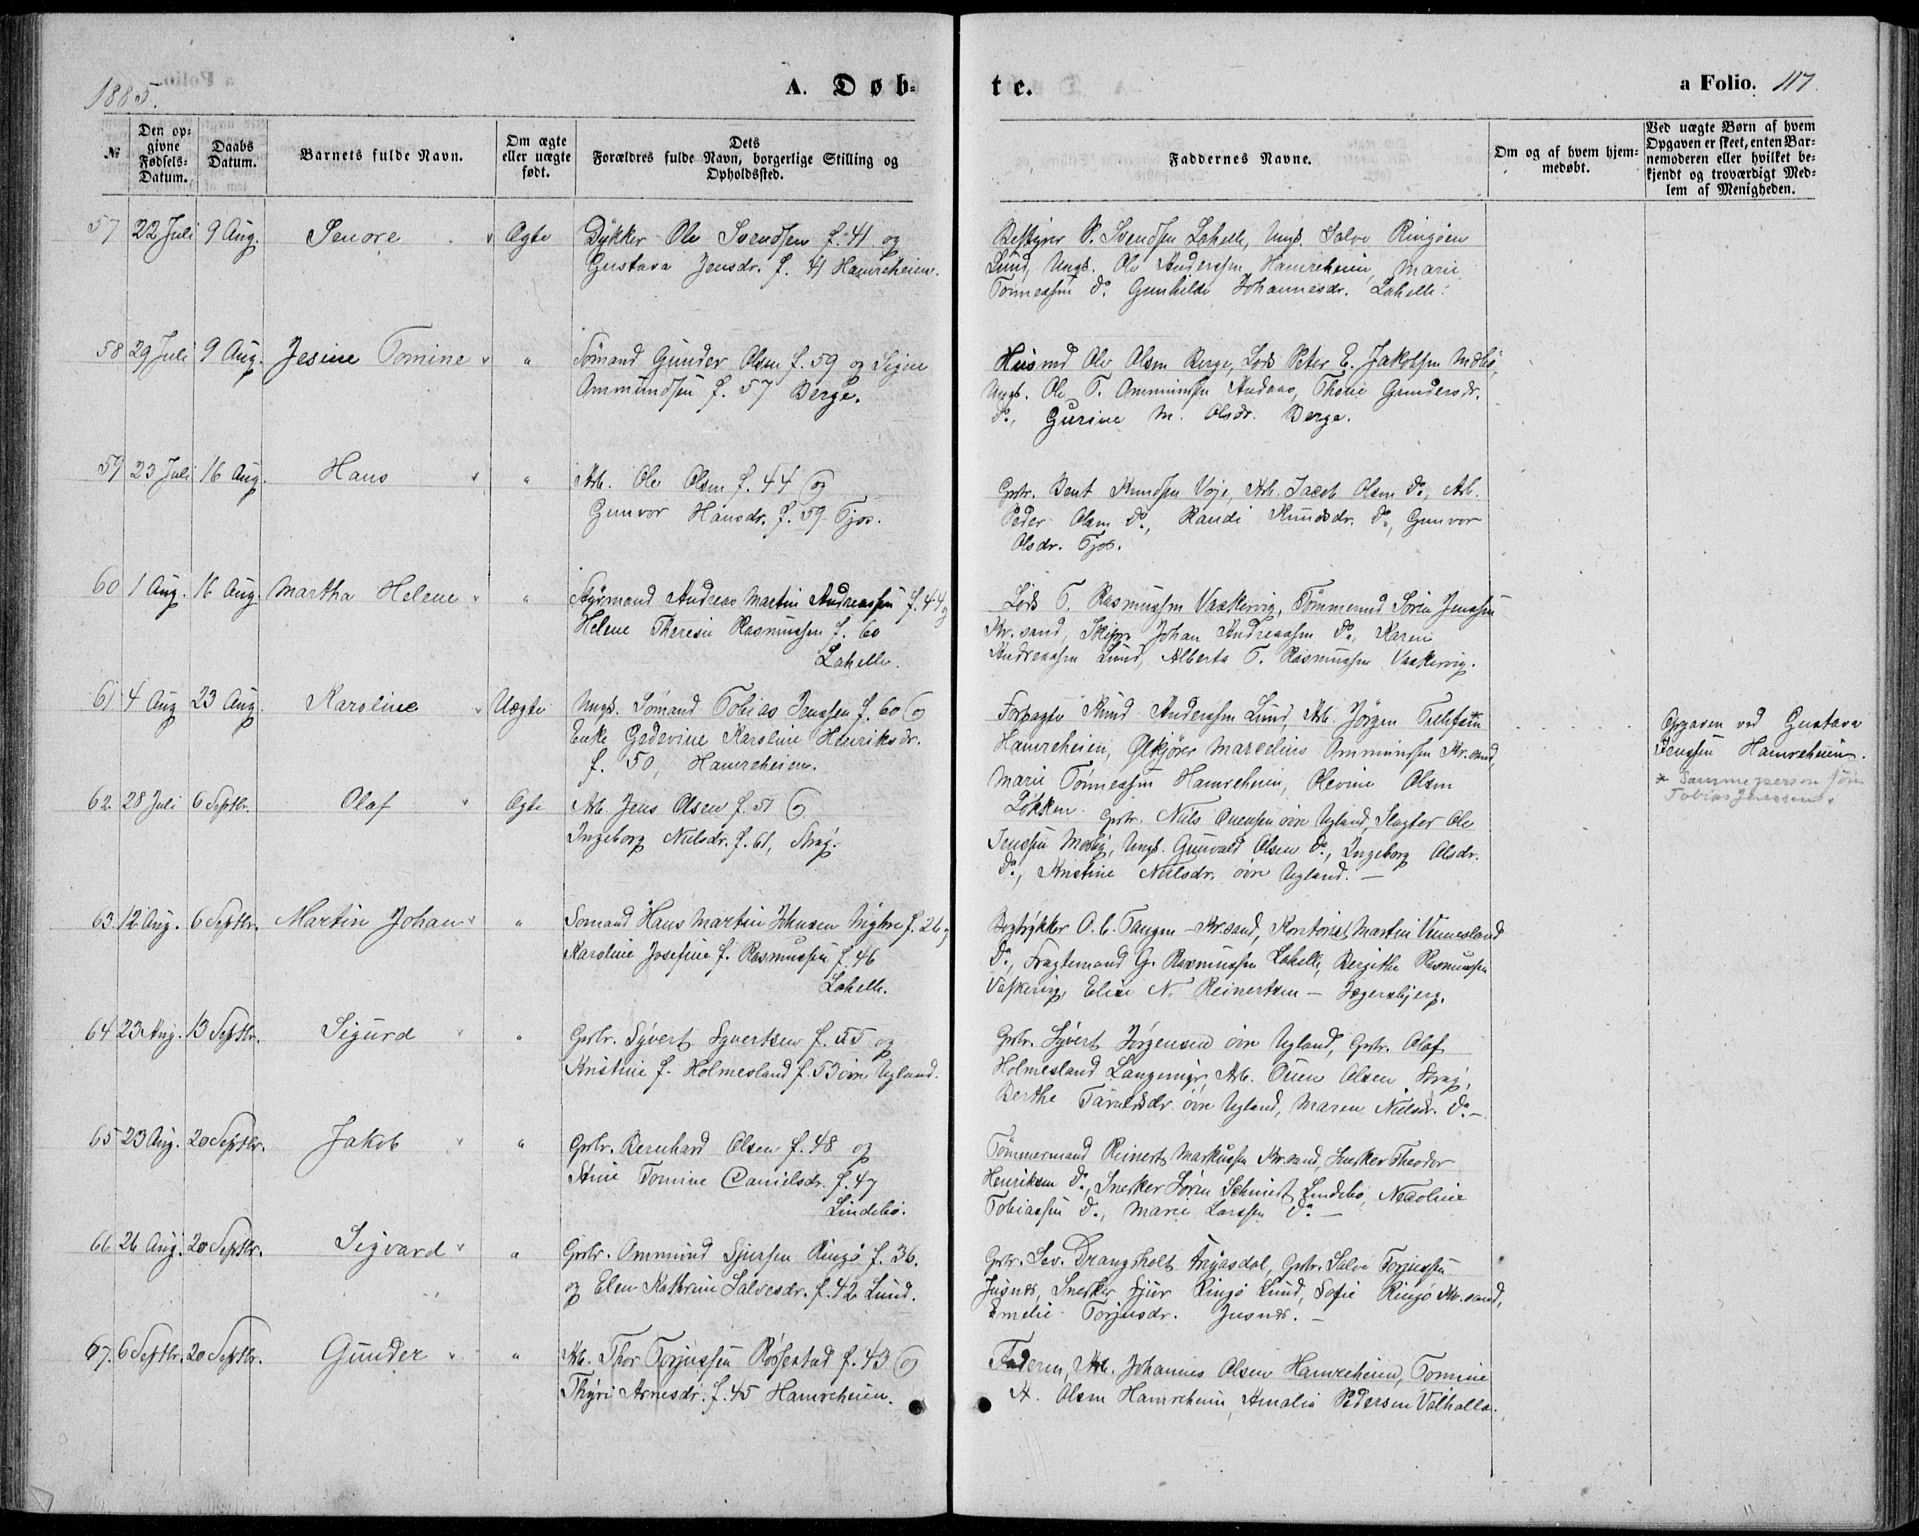 1885.
A. Døb-
te.
a Folio. 117.
№
Den op-
givne
Fødsels-
Datum.
Daabs
Datum.
Barnets fulde Navn.
Om ægte
eller uægte
født.
Dets
Forældres fulde Navn, borgerlige Stilling og
Opholdssted.
Faddernes Navne.
Om og af hvem hjem-
medøbt.
Ved uægte Børn af hvem
Opgaven er skeet, enten Bar-
nemoderen eller hvilket be-
kjendt og troværdigt Med-
lem af Menigheden.
57 22 Juli 9 Aug. Senore " Ægte Dykker Ole Svendsen f. 41 og
Gustava Jensdr. f. 41 Hamreheien.
Bestyrer P. Svendsen Lahelle, Ungk. Salve Ringøen
Lund, Ungk. Ole Anderssen Hamreheien, Marie
Tønnessen do. Gunhilde Johannesdr. Lahelle.
58 29 Juli 9 Aug. Jesine Tomine " " Sömand Gunder Olsen f. 59 og Signe
Ammundsen f. 57 Berge.
Husmd Ole Olsen Berge, Lods Peter E. Jakobsen
Ungk. Ole T. Ammunsen Andaas, Thorie Gundersdr.
do., Gurine M. Olsdr. Berge.
59 23 Juli 16 Aug. Hans " " Arb. Ole Olsen f. 44 og
Gunvor Hansdr. f. 59 Tjos.
Grbr. Bent Knudsen Voje, Arb. Jacob Olsen do., Arb.
Peder Olsen do., Randi Knudsdr. do., Gunvor
Olsdr. Tjos.
60 1 Aug. 16 Aug. Martha Helene " " Styrmand Andreas Martin Andreassen f. 44 og
Helene Theresie Rasmussen f. 60
Lahelle.
Lods T. Rasmussen Vaskervig, Tømmermd Sören Jenssen
Kr.sand, Skipper Johan Andreassen do., Karen
Andreassen Lund, Alberta T. Rasmussen Vaskervig.
61 4 Aug 23 Aug. Karoline " Uægte Ungk. Sömand Tobias Jenssen f. 60 og
Enke Gedevine Karoline Henriksdr.
f. 50, Hamreheien.
Forpagter Knud Anderssen Lund, Arb. Jørgen Tellefsen
Hamreheien, Ølkjører Marselius Ammunssen Kr.sand,
Marie Tönnessen Hamreheien, Olevine Olsen
Løkken.
Opgaven ved Gustava
Jenssen Hamreheien.
* Samme person som
Tobias Jenssen.
62 28 Juli 6 Septbr. Olaf " Ægte Arb. Jens Olsen f. 51 og
Ingeborg Nielsdr. f. 61, Strag.
Grbr. Nils Ouensen øvre Ugland, Slagter Ole
Jenssen Mosby, Ungk. Gunvald Olsen do., Ingeborg Olsdr.
do., Kristine Nielsdr. øvre Ugland. —
63 12 Aug. 6 Septbr. Martin Johan " " Sömand Hans Martin Johnsen f. 26 og
Karoline Josefine f. Rasmussen f. 46
Lahelle.
Bogtrykker O. C. Tangen Kr.sand, Kontorist Martin Vennesland
do., Fragtemand G. Rasmussen Lahelle, Bergithe Rasmussen
Vaskervig, Elise N. Reinertsen — Jegersbjerg.
64 23 Aug. 13 Septbr. Sigurd " " Grbr. Syvert Syvertsen f. 55 og
Kristine f. Holmesland f. 53 øvre Ugland.
Grbr. Syvert Jørgensen øvre Ugland, Grbr. Olaf
Holmesland Langenigr, Arb. Ouen Olsen Strag,
Berthe Taraldsdr. øvre Ugland, Maren Nielsdr. do. —
65 23 Aug. 20 Septbr. Jakob " " Grbr. Bernhard Olsen f. 48 og
Stine Tomine Danielsdr. f. 47
Lindebø.
Tømmermand Reinert Markussen Kr.sand, Snekker Theodor
Henriksen do., Snekker Søren Schmidt Lindebø, Nicoline
Tobiassen do., Marie Larssen do. —
66 26 Aug. 20 Septbr. Sigvard " " Grbr. Ommund Sjursen Ringø f. 36.
og Elen Kathrine Salvesdr. f. 42 Lund.
Grbr. Sev. Drangsholt Aagasdal, Grbr. Salve Torjussen
Justnes, Snekker Sjur Ringø Lund, Sofie Ringø Kr.sand,
Emelie Torjusdr. Justnes. —
67. 6 Septbr. 20 Septbr. Gunder " " Arb. Thor Torjussen Rossestad f. 43 og
Thyri Arnesdr. f. 45 Hamreheien.
Faderen, Arb. Johannes Olsen Hamreheien, Tomine
A. Olsen Hamreheien, Amalia Pedersen Valhalla.